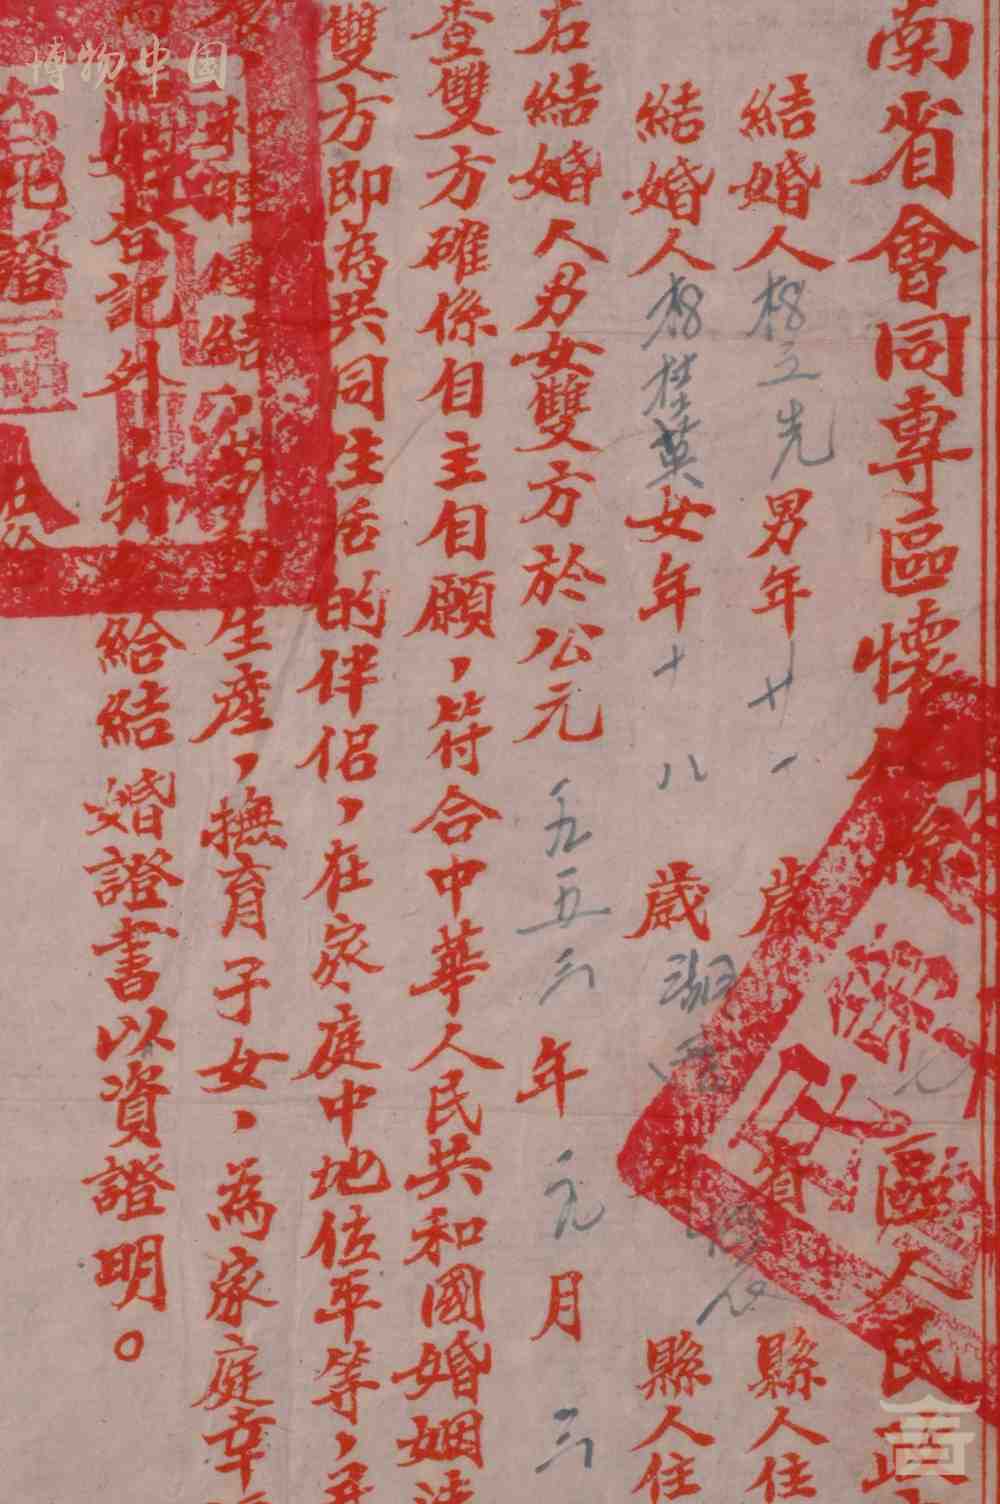 南省會同專區懷縣區人民政
結婚人楊立先男年廿一歲省縣人住
結婚人楊桂英女年十八歲湖縣人住
右結婚人男女雙方於公元一九五三年元月三
查雙方確係自主自願，符合中華人民共和國婚姻法
雙方即為共同生活的伴侶，在家庭中地位平等，
結勞動生產，撫育子女，為家庭幸
登記外，特給結婚證書以資證明。
證
博物中国